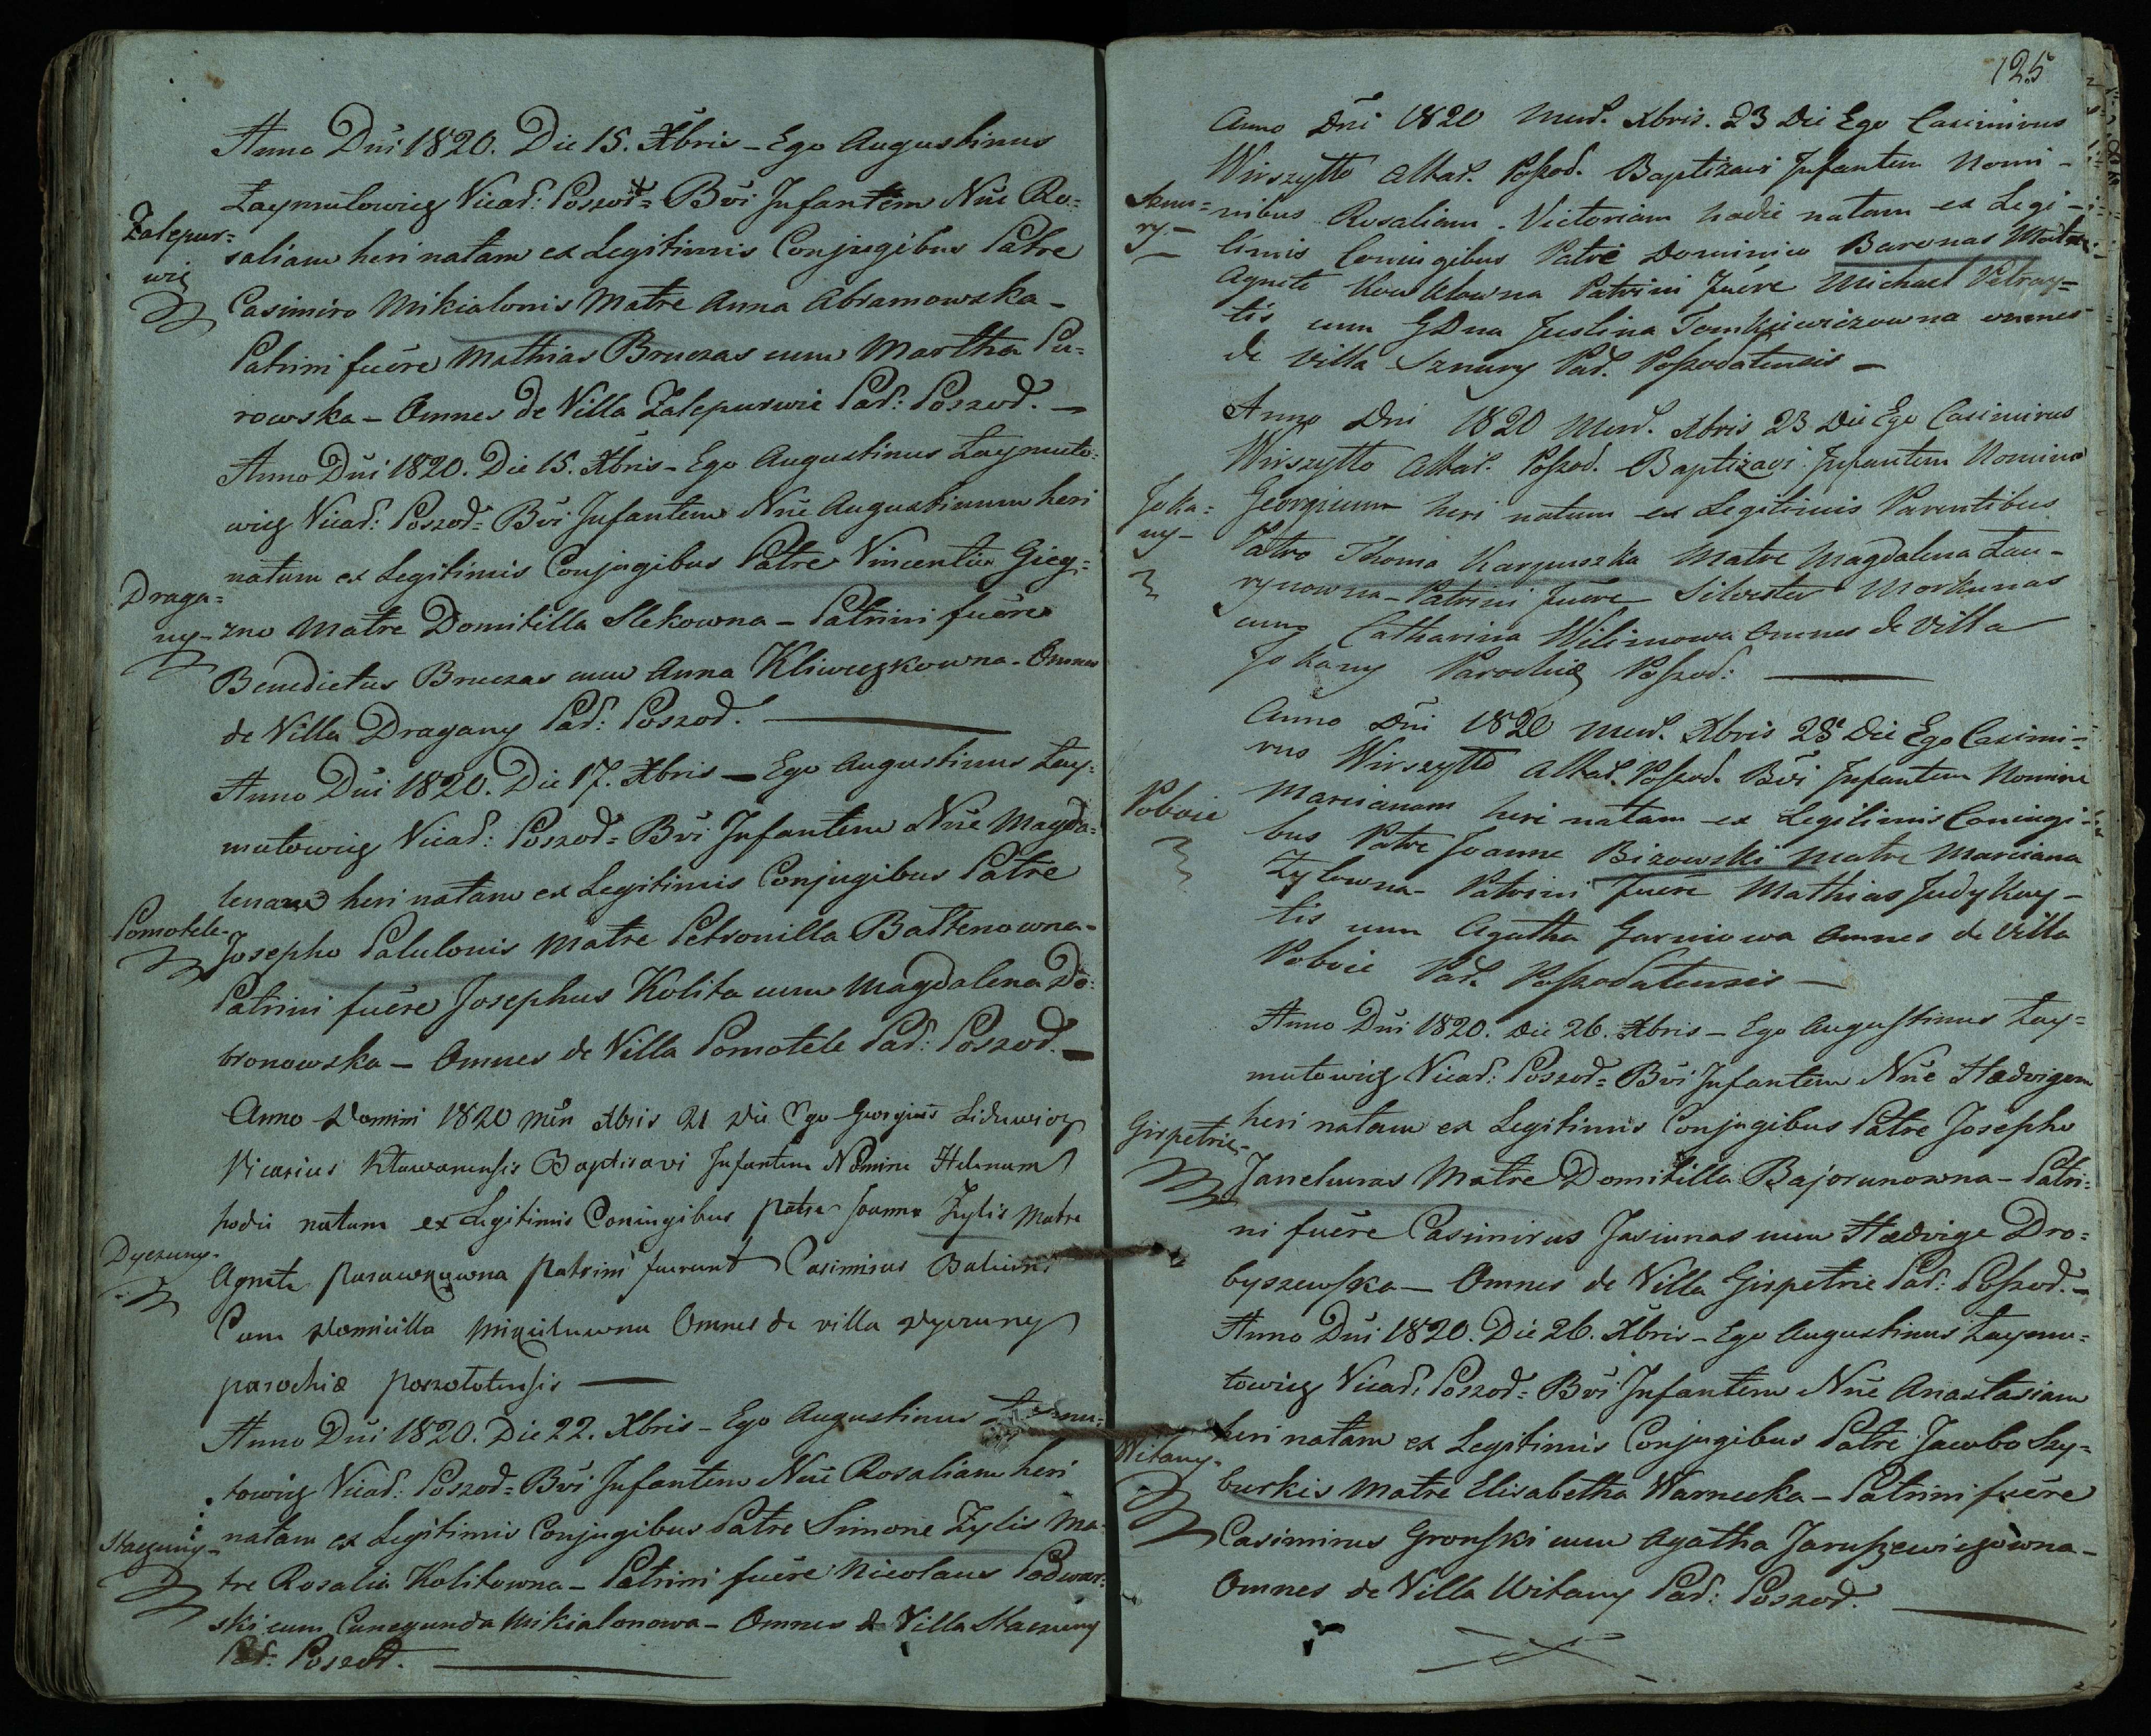 Anno Dni 1820. Die 15. Xbris - Ego Augustinus
Zaymutowicz Vicad: Poszod= Bvi Infantem Nne Ro=
Zalepur=
wie
saliam heri natam ex Legitimis Conjugibus Patre
Casimiro Mikialonis Matre Anna Abramowska -
Patrini fuêre Mathias Bruczas cum Martha Pu=
rowska - Omnes de Villa Zalepurwie Pad: Poszod. -
Anno Dni 1820. Die 15. Xbris - Ego Augustinus Zaymuto=
wicz Vicad: Poszod= Bvi Infantem Nne Augustinum heri
natum ex Legitimis Conjugibus Patre Vincentio Gieg=
Draga=
ny-
zno Matre Domitilla Slekowna - Patrini fuêre
Benedictus Bruczas cum Anna Kliwczkowna - Omnes
de Villa Dragany Pad: Poszod.
Anno Dni 1820. Die 17. Xbris - Ego Augustinus Zay=
mutowicz Vicad: Poszod= Bvi Infantem Nne Magda=
lenam heri natam ex Legitimis Conjugibus Patre
Pomotele-
Josepho Palulonis Matre Petronilla Baltenowna -
Patrini fuêre Josephus Kolita cum Magdalena Do=
bronowska - Omnes de Villa Pomotele Pad: Poszod. -
Anno Domini 1820 Men Xbris 21 Die Ego Georgius Liduwicz
Vicarius Klowanensis Baptisavi Infantem Nomine Helenam
hodie natam ex Legitimis Coniugibus patre Joanne Zylis Matre
Dyczuny-
Agneta patrini fuerunt Casimirus
Cum Domicilla Omnes de villa Dyczuny
parochiæ poszototensis
Anno Dni 1820. Die 22. Xbris - Ego Augustinus
towicz Vicad: Poszod= Bvi Infantem Nne Rosaliam heri
Staczuny-
natam ex Legitimis Conjugibus Patre Simone Zylis Ma=
tre Rosalia Kolitowna - Patrini fuêre Nicolaus Podwar=
ski cum Cunegunda Mikialonowa - Omnes de Villa Staczuny
Pad: Poszod.
125
Anno Dni 1820 Mens. Xbris. 23 Die Ego Casimirus
Wirszytto Altad. Poszod. Baptizavi Infantem Nomi-
Sznu=
ry-
nibus Rosaliam. Victoriam hodie natam ex Legi-
timis Coniugibus Patre Dominico Baronas Matre
Agneta Patrini fuêre Michael Petray=
tis cum GDna Justina Tomkiewiczowna omnes
de Villa Sznury Pad. Poszodatensis -
Anno Dni 1820 Mens. Xbris 23 Die Ego Casimirus
Wirszytto Altad. Poszod. Baptizavi Infantem Nomine
Joka=
ny-
Georgium heri natum ex Legitimis Parentibus
Patre Thoma Karpuszka Matre Magdalena Lau-
rynowna - Patrini fuêre Silvester Morkunas
cum Catharina Wilimowa Omnes de Villa
Jokany Parochiæ Poszod:
Anno Dni 1820 Mens. Xbris 28 Die Ego Casimi-
rus Wirszytto Altad. Poszod. Bvi Infantem Nomine
Poboie
Marcianam heri natam ex Legitimis Coniugi-
bus Patre Joanne Bizowski Matre Marciana
Zylowna - Patrini fuêre Mathias Judykay-
tis cum Agatha Garniowa Omnes de Villa
Poboie Pad. Poszodatensis -
Anno Dni 1820. Die 26. Xbris - Ego Augustinus Zay=
mutowicz Vicad: Poszod= Bvi Infantem Nne Hedvigem
Girpetrie-
heri natam ex Legitimis Conjugibus Patre Josepho
Janelunas Matre Domitilla Bajorunowna - Patri=
ni fuêre Casimirus Jasiunas cum Hedvige Dro=
byszewska - Omnes de Villa Girpetrie Pad: Poszod. -
Anno Dni 1820. Die 26. Xbris - Ego Augustinus Zaymu=
towicz Vicad: Poszod= Bvi Infantem Nne Anastasiam
Witany-
heri natam ex Legitimis Conjugibus Patre Jacobo Szy=
burkis Matre Elisabetha Warnecka - Patrini fuêre
Casimirus Gronski cum Agatha Jaruszewiczowna -
Omnes de Villa Witany Pad: Poszod.